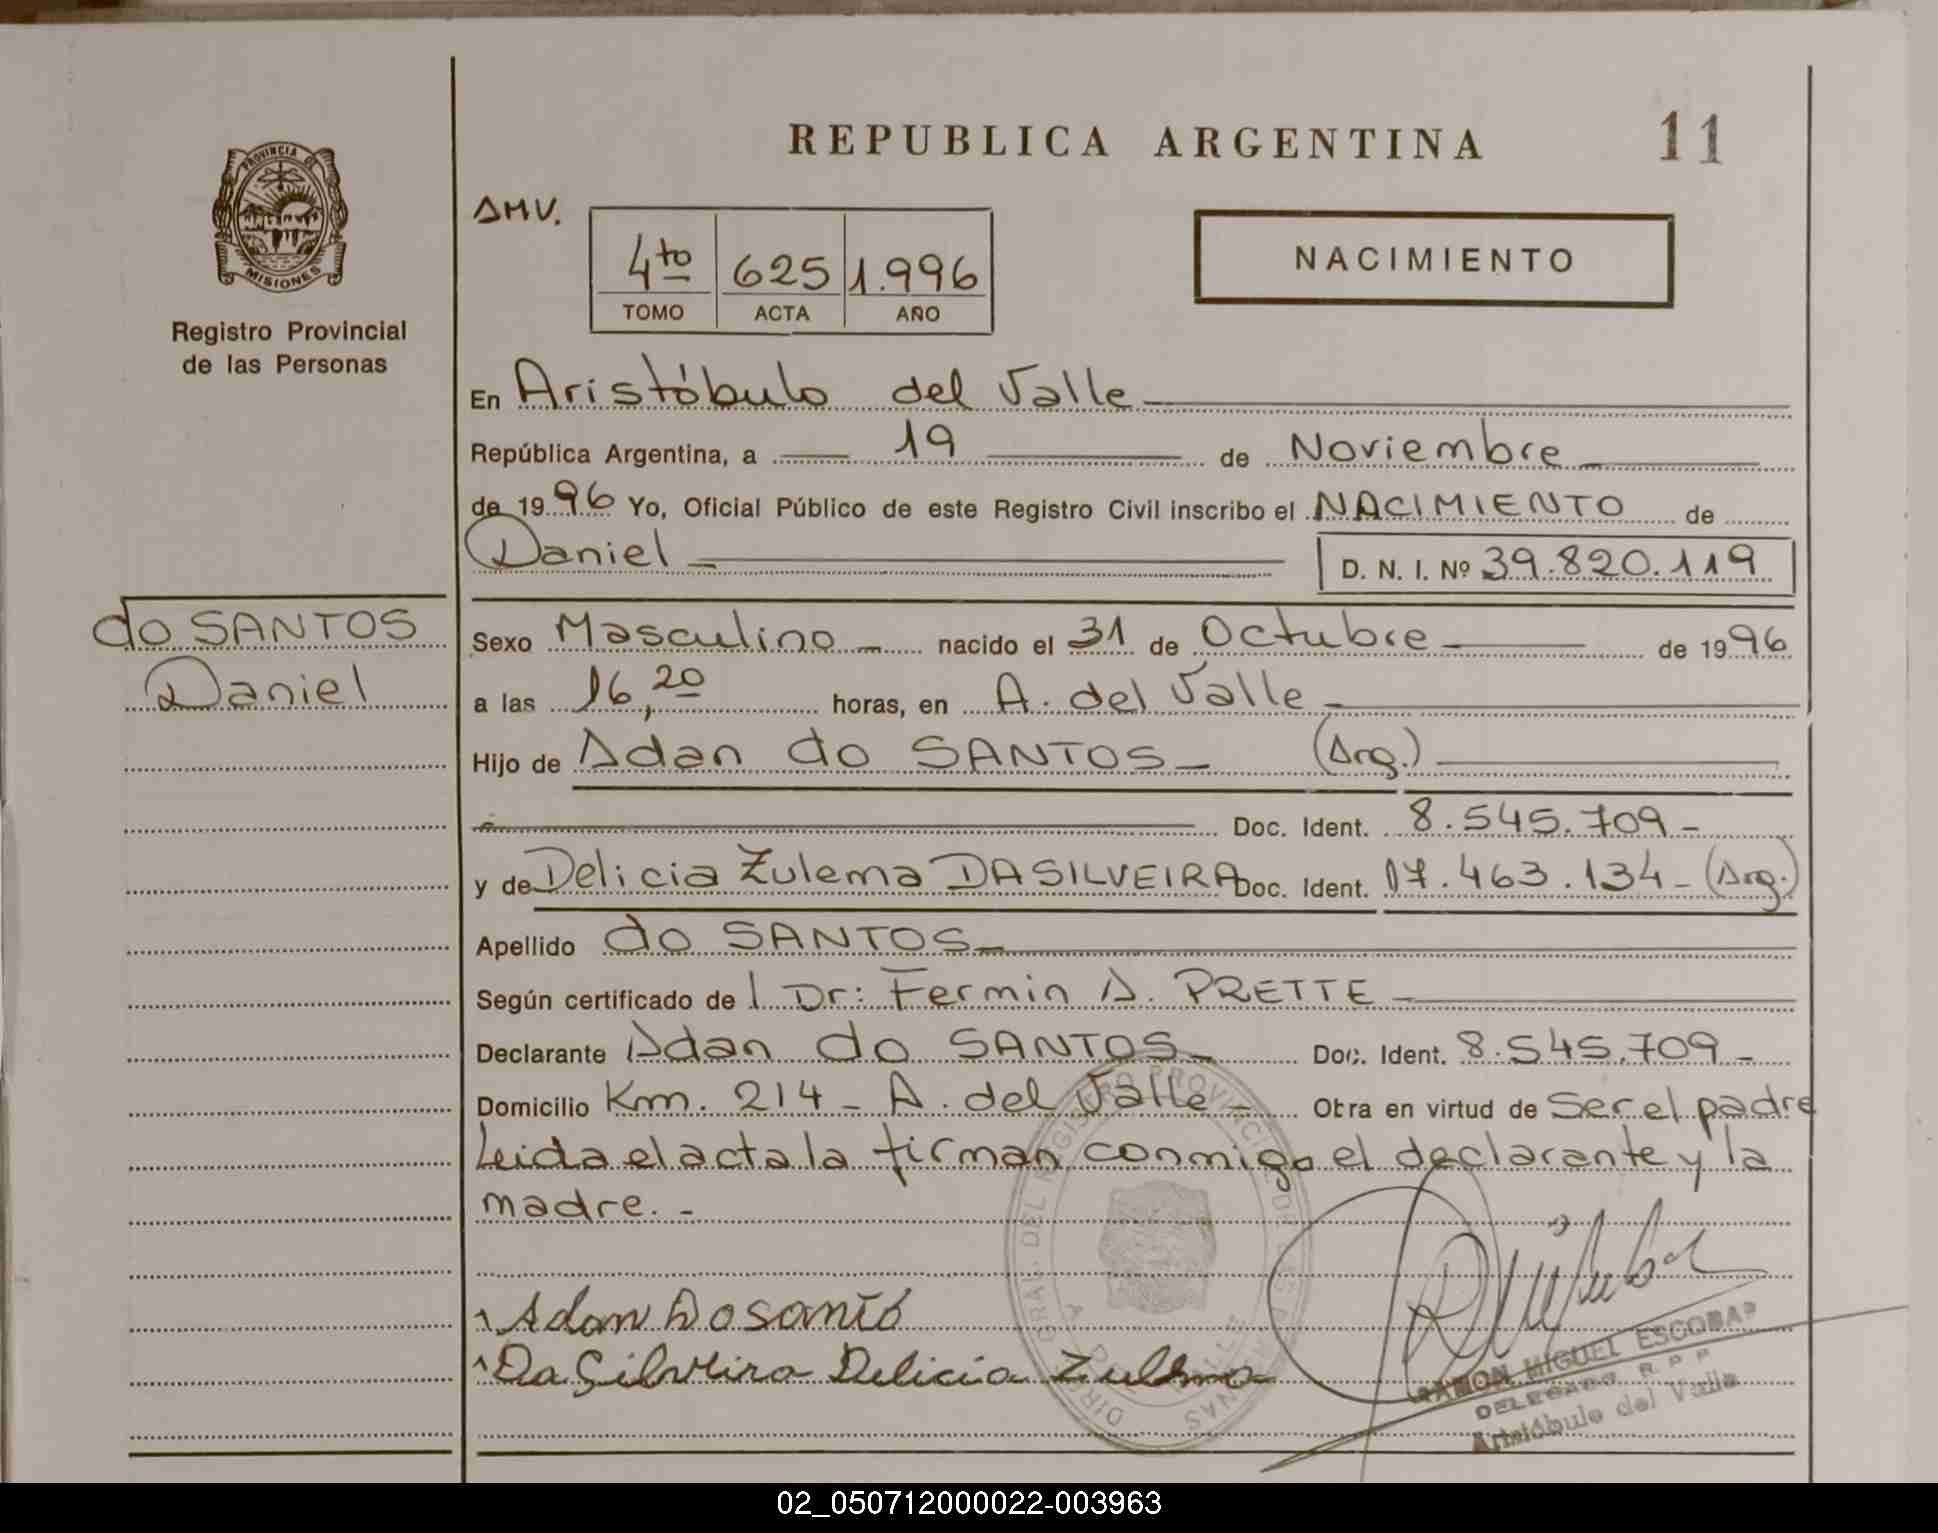 REPUBLICA ARGENTINA
11
PROVINCIA DE
MISIONES
Registro Provincial
de las Personas
AMV.
4to 625 1.996
TOMO ACTA AÑO
NACIMIENTO
En Aristóbulo del Valle
República Argentina, a 19 de Noviembre
de 1996 Yo, Oficial Público de este Registro Civil inscribo el NACIMIENTO de
Daniel D. N. I. Nº 39.820.119
do SANTOS
Daniel
Sexo Masculino nacido el 31 de Octubre de 1996
a las 16,20 horas, en A. del Valle
Hijo de Adan do SANTOS (Arg.)
Doc. Ident. 8.545.709
y de Delicia Zulema DA SILVEIRA Doc. Ident. 17.463.134 (Arg.)
Apellido do SANTOS
Según certificado de l Dr: Fermin A. PRETTE
Declarante Adan do SANTOS Doc. Ident. 8.545.709
Domicilio Km. 214 - A. del Valle Obra en virtud de ser el padre
Leida el acta la firman conmigo el declarante y la
madre. -
Adan Dosanto
Da Silveira Delicia Zulema
RAMON MIGUEL ESCOBAR
DELEGADO R. P. P.
Aristóbulo del Valle
02_050712000022-003963